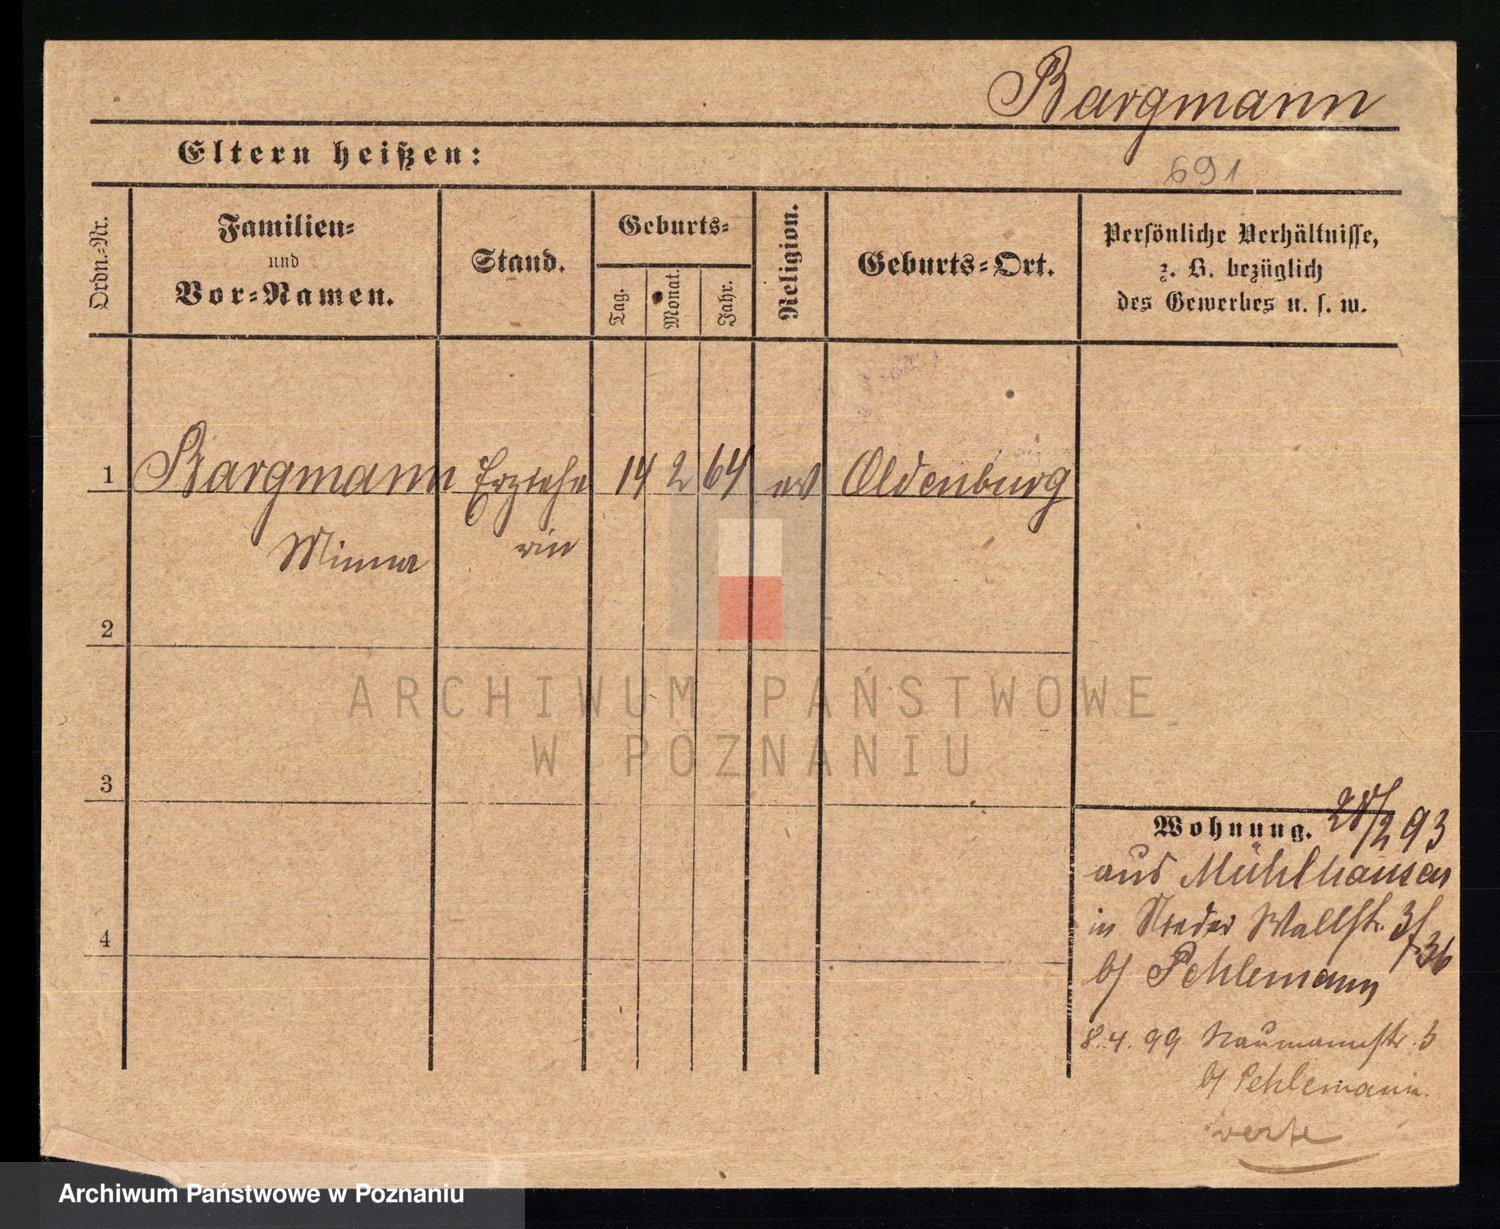 Bargmann
Eltern heißen:
691
Ordn.-Nr.
Familien-
und
Vor-Namen.
Stand.
Geburts-
Tag.
Monat.
Jahr.
Religion.
Geburts-Ort.
Persönliche Verhältnisse,
z. B. bezüglich
des Gewerbes u. s. w.
1 Bargmann Erziehe 14 2 64 ev Oldenburg
Minna rin
2
3
4
Wohnung. 28/2 93
aus Mühlhausen
in Wallstr.
b/ Pehlemann
8.4.99 Naumannstr. 5
b/ Pehlemann.
verte
ARCHIWUM PAŃSTWOWE
W POZNANIU
Archiwum Państwowe w Poznaniu